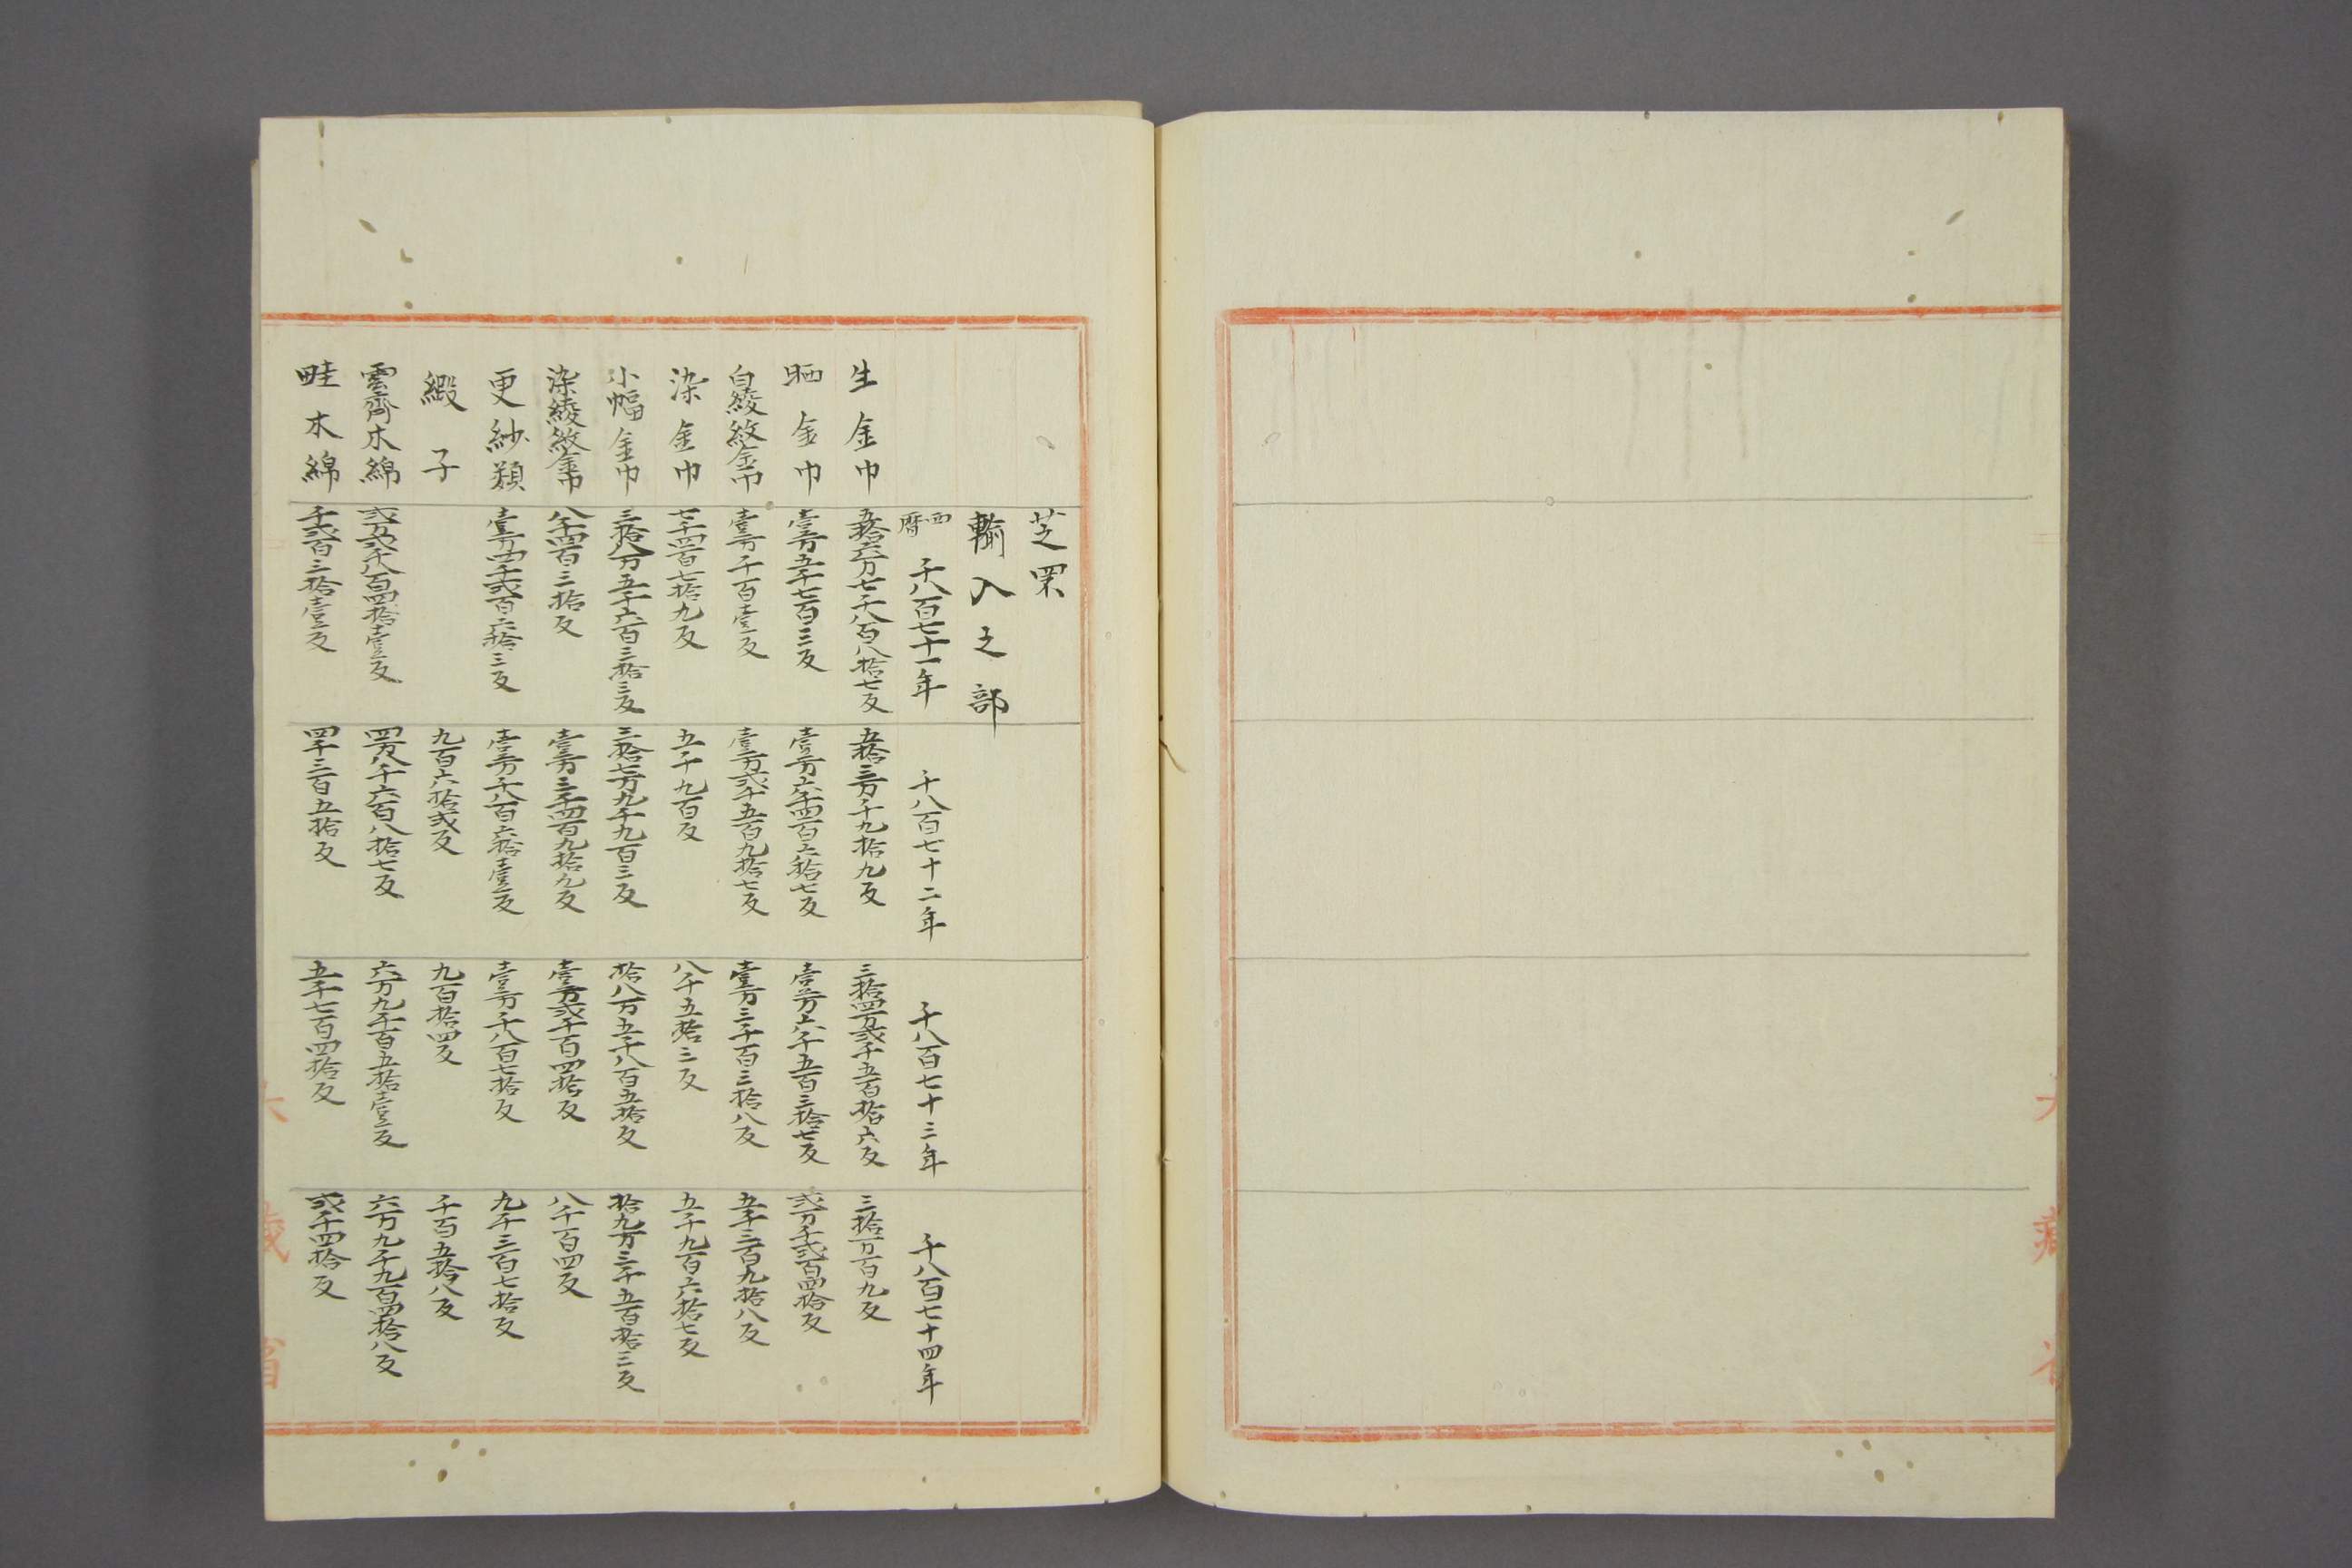 芝罘
輸入之部
西暦 千八百七十一年 千八百七十二年 千八百七十三年 千八百七十四年
生金巾 五拾六万七千八百八拾七反 五拾三万千九拾九反 三拾四万弐千五百拾六反 三拾万百九反
晒金巾 壹万五千七百三反 壹万六千四百六拾七反 壹万六千五百三拾七反 弐万千弐百四拾反
白綾紋金巾 壹万千百壹反 壹万弐千五百九拾七反 壹万三千百三拾八反 五千三百九拾八反
染金巾 七千四百七拾九反 五千九百反 八千五拾三反 五千九百六拾七反
小幅金巾 三拾八万五千六百三拾三反 三拾七万九千九百三反 拾八万五千八百五拾反 拾九万三千五百拾三反
染綾紋金巾 八千四百三拾反 壹万三千四百九拾九反 壹万弐千百四拾反 八千百四反
更紗類 壹万四千弐百六拾三反 壹万千八百六拾壹反 壹万千八百七拾反 九千三百七拾反
緞子 九百六拾弐反 九百拾四反 千百五拾八反
雲齊木綿 弐万弐千八百四拾壹反 四万八千六百八拾七反 六万九千百五拾壹反 六万九千九百四拾八反
畦木綿 千弐百三拾壹反 四千三百五拾反 五千七百四拾反 弐千四拾反
大藏省